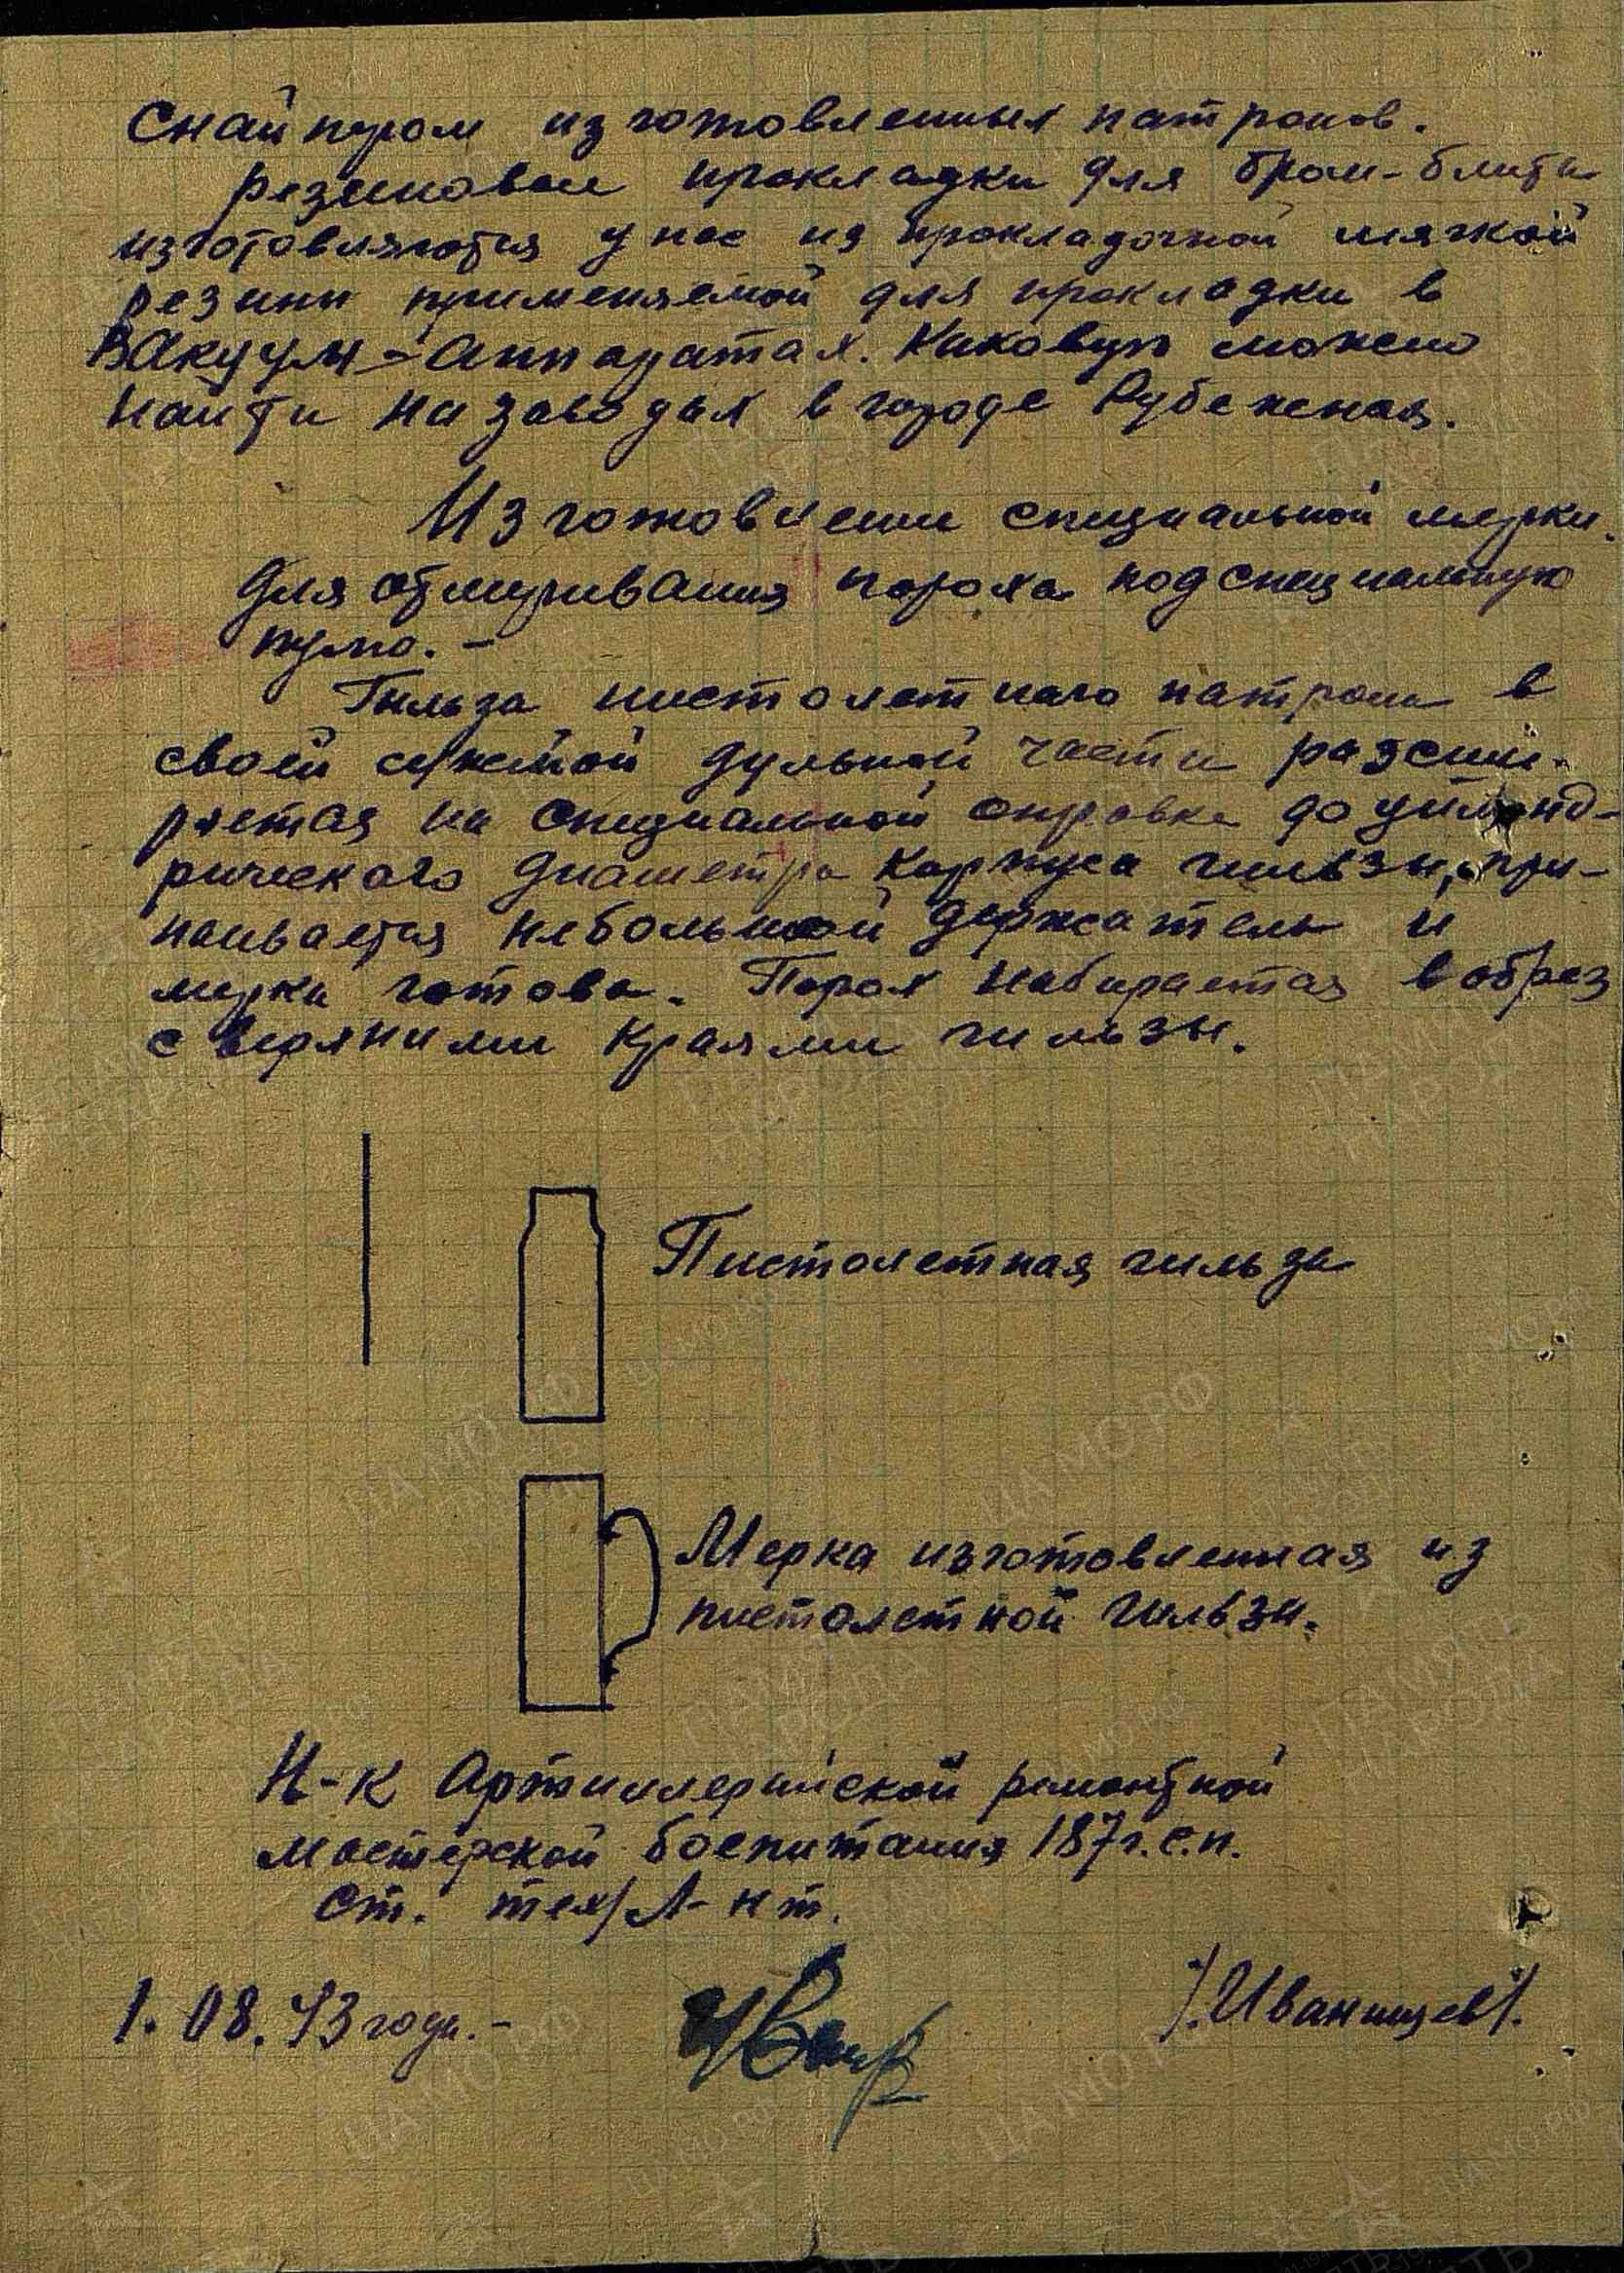 Снайпером изготовленных патронов.
Резиновые прокладки для
изготовляются у нас из прокладочной мягкой
резины применяемой для прокладки в
Вакуум-аппаратах. Каковую можно
найти на заводах в городе Рубежная.
Изготовление специальной мерки
для отмеривания пороха под специальную
пулю. -
Гильза пистолетного патрона в
своей суженной дульной части разши-
ряется на специальной оправке до цилинд-
рического диаметра корпуса гильзы, при-
паивается небольшой держатель и
мерка готова. Порох набирается в обрез
с верхними краями гильзы.
Пистолетная гильза
Мерка изготовленная из
пистолетной гильзы.
Н-к Артиллерийской ремонтной
мастерской боепитания 187 г.с.п.
Ст. тех/Л-нт.
1.08.43 года. -
/.Иванищев/.